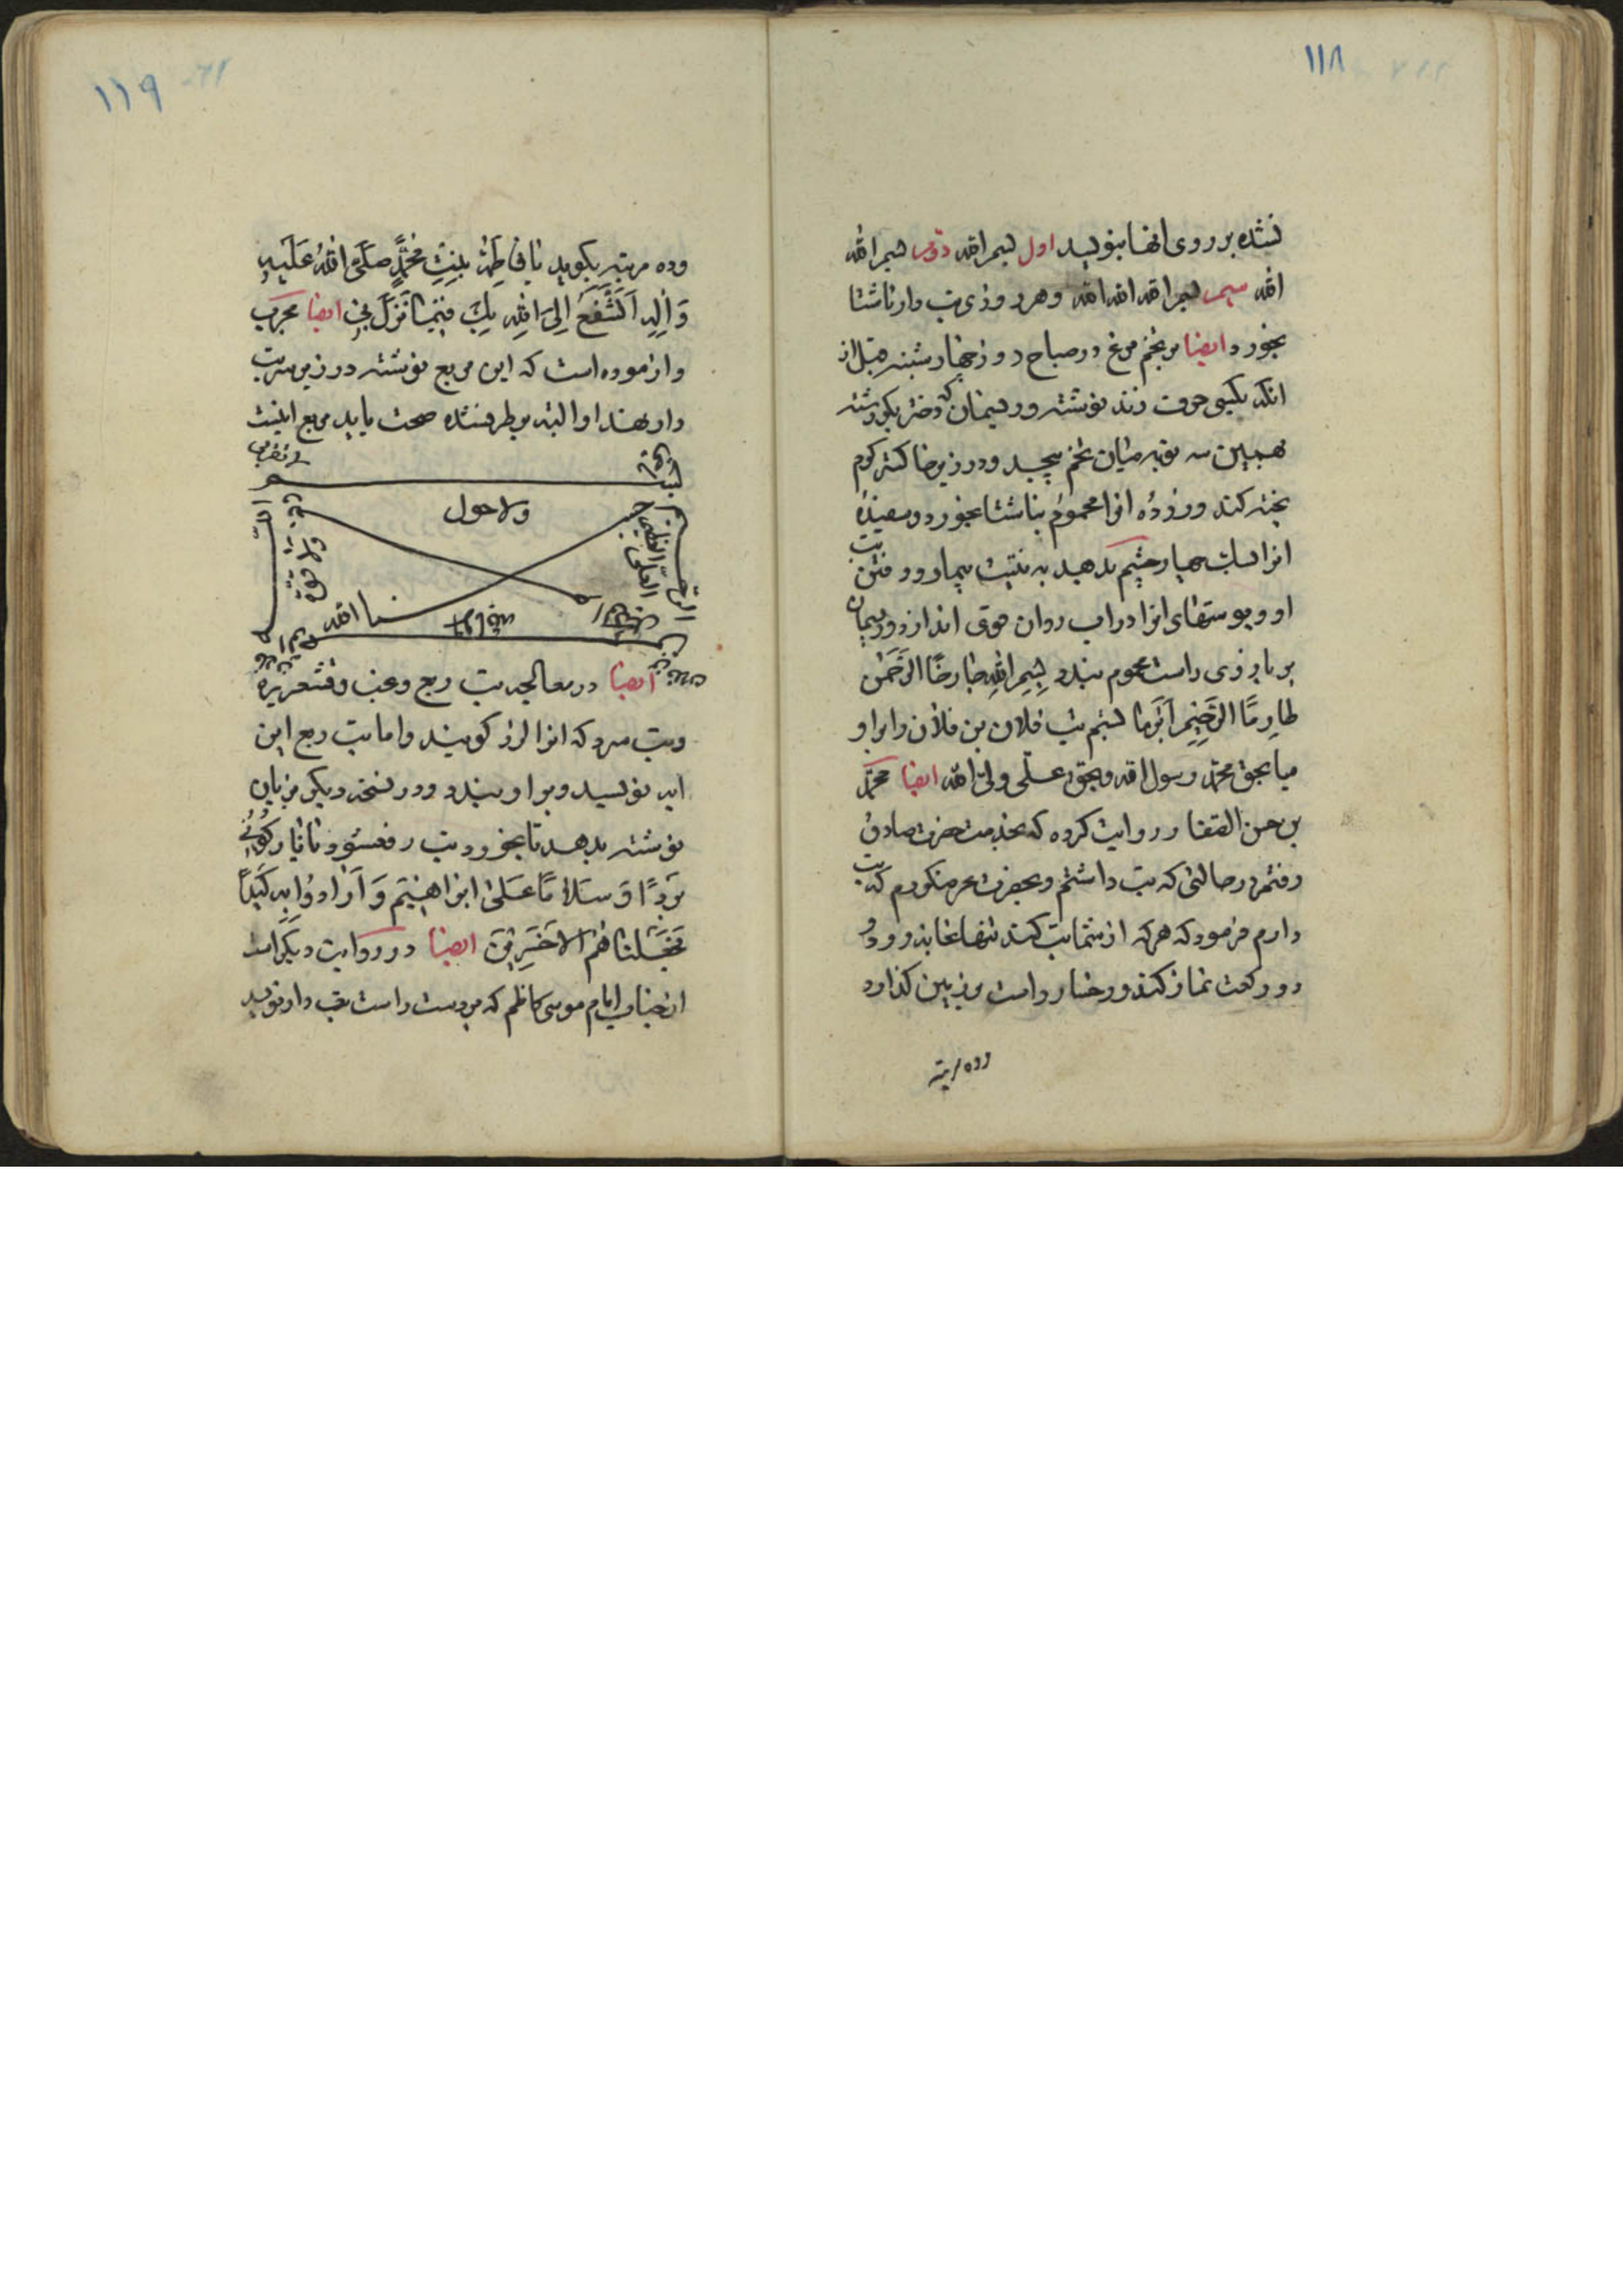 ۱۱۸
نشده بر روی انها بنویسد اول بسم الله دوم بسم الله
الله سیم بسم الله الله الله و هر روزی تب دار ناشتا
بخورد ایضا بر تخم مرغ در صباح روز چهارشنبه قبل از
انکه بکسی حرف زند نوشته و ریسمان که دختر بکر رشته
همچنین سه توبه میان تخم پیچید و در زیر خاکستر کرم
پخته کند و زرده انرا محموم بناشتا بخورد و سفیده
انرا بسک چهار چشم بدهید به نیت بیمار و رفتن تب
او و پوستهای انرا در اب روان قوی اندازد و ریسمان
بر بازوی راست محموم بندد بِسْمِ اللهِ حارحًا الرَّحْمن
طارِمًا الرَّحیم اَبَرما بستم تب فلان بن فلان را بر او
میا بحق محمد رسول الله و بحق علی ولی الله ایضا محمد
بن حسن الصفار روایت کرده که بخدمت حضرت صادق
رفتم در حالتی که تب داشتم و بحضرت عرض کردم که تب
دارم فرمود که هر که از شما تب کند تنها بخانه رود و
دو رکعت نماز کند و رخسار راست بر زمین کذارد
وده مرتبه
۱۱۹
وده مرتبه بکوید یا فاطِمَةُ بِنْتِ مُحَمَّدٍ صَلَّی اللهُ عَلَیْهِ
وَ اٰلِهِ اَتَشَفَّعُ اِلیَ اللهِ بِكِ فیما نَزَلَ بی ایضا مجرب
و ازموده است که این مربع نوشته در زیر سر تب
دار نهند او البته بر طرف شده صحت یابد مربع اینست
ولا حول
ولا قوة
العلی العظیم
الله
ایضا در معالجه تب ربع و غب و قشعریره
و تب سرد که انرا لرز کویند و اما تب ربع این
ایه نویسد و بر او بندد و در نسخه دیکر بر نان
نوشته بدهد تا بخورد تب رفع شود یا نارُ کُونی
بَرْدًا وَ سَلامًا عَلی اِبْراهیمَ وَ اَرادُوا بِهِ کَیْدًا
فَجَعَلْناهُمُ الاَخْسَرینَ ایضا در روایت دیکر است
از جناب امام موسی کاظم که بر دست راست تب دار نویسد